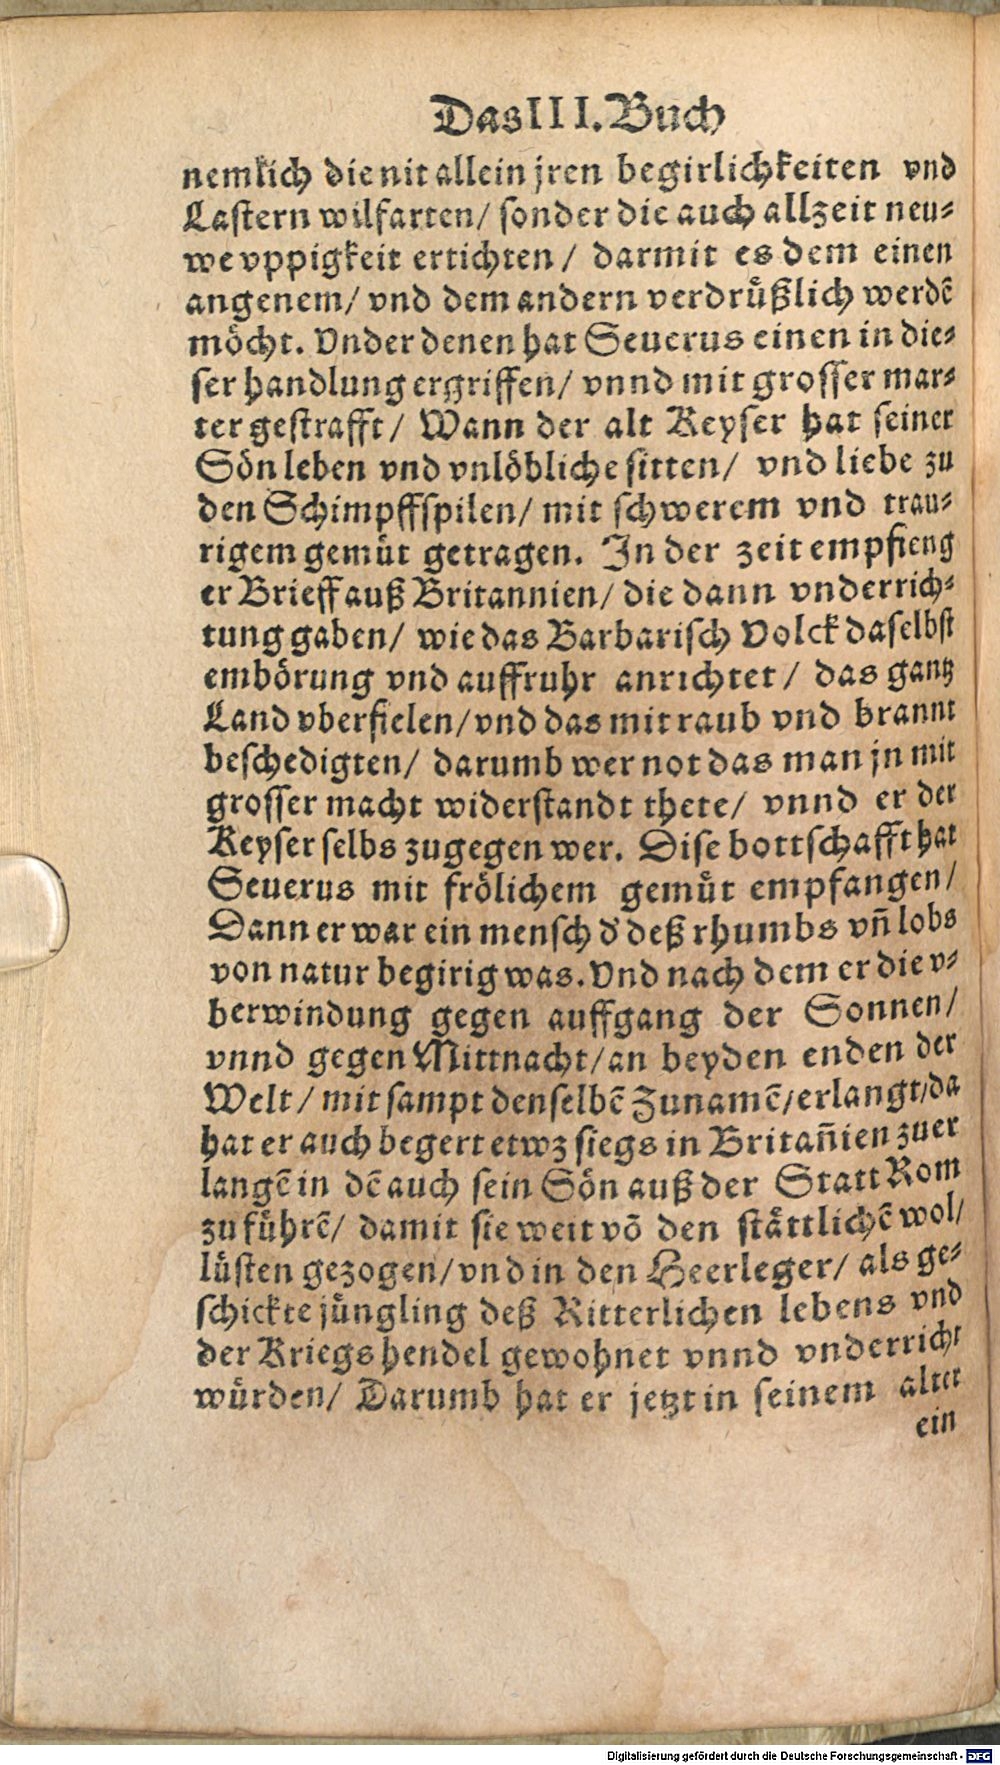 Das III. Buch
nemlich die nit allein jren begirlichkeiten vnd
Lastern wilfarten/ sonder die auch allzeit neu⸗
we vppigkeit ertichten/ darmit es dem einen
angenem/ vnd dem andern verdrüßlich werdẽ
möcht. Vnder denen hat Seuerus einen in die⸗
ser handlung ergriffen/ vnnd mit grosser mar⸗
ter gestrafft/ Wann der alt Keyser hat seiner
Sön leben vnd vnlöbliche sitten/ vnd liebe zu
den Schimpffspilen/ mit schwerem vnd trau⸗
rigem gemüt getragen. In der zeit empfieng
er Brieff auß Britannien/ die dann vnderrich⸗
tung gaben/ wie das Barbarisch Volck daselbst
embörung vnd auffruhr anrichtet/ das gantz
Land vberfielen/ vnd das mit raub vnd brannt
beschedigten/ darumb wer not das man jn mit
grosser macht widerstandt thete/ vnnd er der
Keyser selbs zugegen wer. Dise bottschafft hat
Seuerus mit frölichem gemüt empfangen/
Dann er war ein mensch d' deß rhumbs vñ lobs
von natur begirig was. Vnd nach dem er die v⸗
berwindung gegen auffgang der Sonnen/
vnnd gegen Mittnacht/ an beyden enden der
Welt/ mit sampt denselbẽ Zunamẽ/ erlangt/ da
hat er auch begert etwz siegs in Britañien zuer
langẽ in dẽ auch sein Sön auß der Statt Rom
zu führẽ/ damit sie weit võ den stättlichẽ wol/
lüsten gezogen/ vnd in den Heerleger/ als ge⸗
schickte jüngling deß Ritterlichen lebens vnd
der Kriegshendel gewohnet vnnd vnderricht
würden/ Darumb hat er jetzt in seinem alter
ein
Digitalisierung gefördert durch die Deutsche Forschungsgemeinschaft - DFG